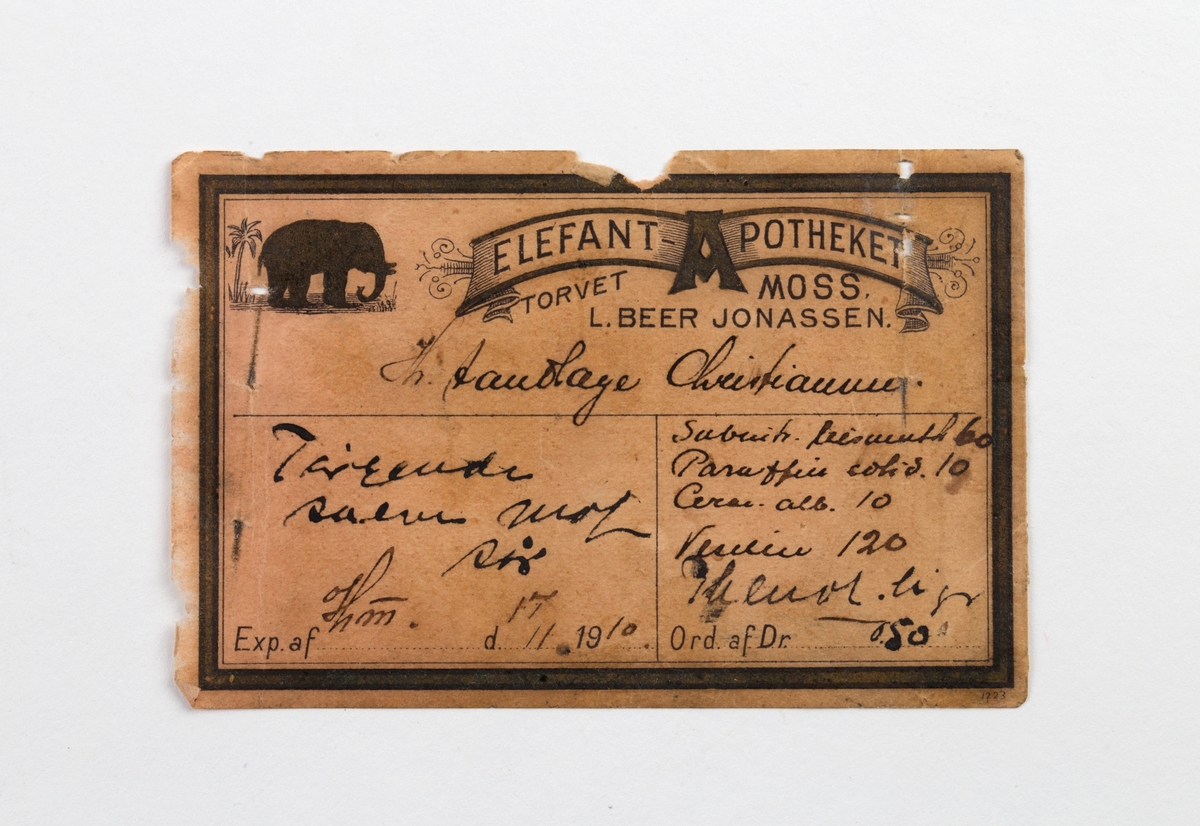 ELEFANT-APOTHEKET
TORVET MOSS,
L. BEER JONASSEN.
Hr. Christiansen.
Tørrende
salve mod
sår
Subnitr. bismuth 60
Paraffin solid. 10
Cerae. alb. 10
120
Phenol. liq
0.50
Exp. af Hm. d. 17/11 1910. Ord. af Dr.
1223